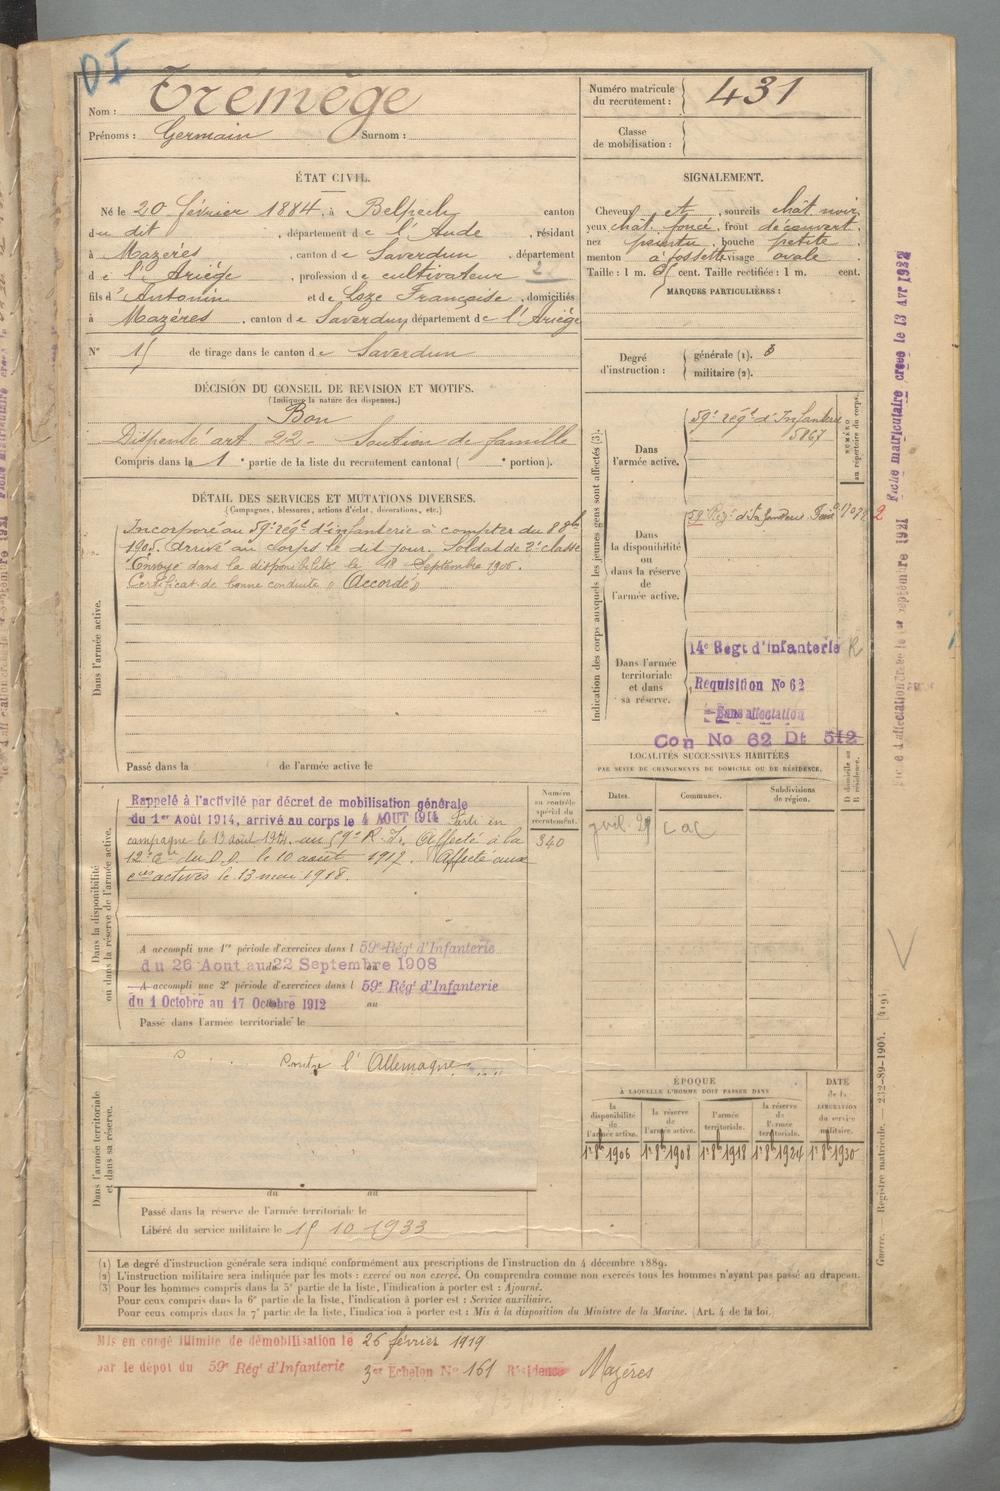 DI
Nom : Trémège
Prénoms : Germain Surnom :
Numéro matricule du recrutement : 431
Classe de mobilisation :
ÉTAT CIVIL.
Né le 20 février 1884, à Belpech canton
du dit , département de l'Aude , résidant
à Mazères , canton de Saverdun , département
de l'Ariège , profession de cultivateur 2
fils d'Antonin et de Loze Françoise , domiciliés
à Mazères , canton de Saverdun département de l'Ariège
N° 15 de tirage dans le canton de Saverdun
SIGNALEMENT.
Cheveux et , sourcils chât noir,
yeux chât. foncé , front découvert,
nez pointu , bouche petite ,
menton à fossette visage ovale .
Taille : 1 m. 65 cent. Taille rectifiée : 1 m. cent.
MARQUES PARTICULIÈRES :
Degré d'instruction : générale (1). 3
militaire (2).
DÉCISION DU CONSEIL DE REVISION ET MOTIFS.
(Indiquer la nature des dispenses.)
Bon
Dispensé art. 22 - Soutien de famille
Compris dans la 1e partie de la liste du recrutement cantonal ( e portion).
DÉTAIL DES SERVICES ET MUTATIONS DIVERSES.
(Campagnes, blessures, actions d'éclat, décorations, etc.)
Dans l'armée active.
Incorporé au 59e régt d'infanterie à compter du 8 8bre
1905. Arrivé au corps le dit jour. Soldat de 2e classe
Envoyé dans la disponibilité le 18 Septembre 1906.
Certificat de bonne conduite « Accordé »
Passé dans la de l'armée active le
Indication des corps auxquels les jeunes gens sont affectés (3).
NUMÉRO au répertoire du corps.
Dans l'armée active.
59e régt d'Infanterie
5867
Dans la disponibilité ou dans la réserve de l'armée active.
59 Régt d'Infanterie
2
Dans l'armée territoriale et dans sa réserve.
14e Regt d'infanterie R
Requisition No 62
Sans affectation
Con No 62 Dt 512
LOCALITÉS SUCCESSIVES HABITÉES
PAR SUITE DE CHANGEMENTS DE DOMICILE OU DE RÉSIDENCE.
D domicile ou R résidence.
Dates. Communes. Subdivisions de région.
Numéro au contrôle spécial du recrutement.
340
Dans la disponibilité ou dans la réserve de l'armée active.
Rappelé à l'activité par décret de mobilisation générale
du 1er Août 1914, arrivé au corps le 4 AOUT 1914 Parti en
campagne le 13 août 1914 au 59e R. I. Affecté à la
12e Cie du D.D. le 10 août 1917. Affecté aux
cies actives le 13 mai 1918.
A accompli une 1re période d'exercices dans l 59e Rég' d'Infanterie
du 26 Aout au 22 Septembre 1908
A accompli une 2e période d'exercices dans l 59e Rég' d'Infanterie
du 1 Octobre au 17 Octobre 1912 au
Passé dans l'armée territoriale le
Dans l'armée territoriale et dans sa réserve.
contre l'Allemagne
du au
Passé dans la réserve de l'armée territoriale le
Libéré du service militaire le 15 10 1933
ÉPOQUE
À LAQUELLE L'HOMME DOIT PASSER DANS
DATE de la LIBÉRATION du service militaire.
la disponibilité de l'armée active. la réserve de l'armée active. l'armée territoriale. la réserve de l'armée territoriale.
1er 8bre 1906 1er 8bre 1908 1er 8bre 1918 1er 8bre 1924 1er 8bre 1930
(1) Le degré d'instruction générale sera indiqué conformément aux prescriptions de l'instruction du 4 décembre 1889.
(2) L'instruction militaire sera indiquée par les mots : exercé ou non exercé. On comprendra comme non exercés tous les hommes n'ayant pas passé au drapeau.
(3) Pour les hommes compris dans la 5e partie de la liste, l'indication à porter est : Ajourné.
Pour ceux compris dans la 6e partie de la liste, l'indication à porter est : Service auxiliaire.
Pour ceux compris dans la 7e partie de la liste, l'indication à porter est : Mis à la disposition du Ministre de la Marine. (Art. 4 de la loi.)
Mis en congé illimité de démobilisation le 26 février 1919
par le dépôt du 59e Rég' d'Infanterie 3er Echelon No 161 Résidence Mazères
Fiche matriculaire créée le 13 Avr 1922
Guerre. Registre matricule. — 232-89-1904. [419]